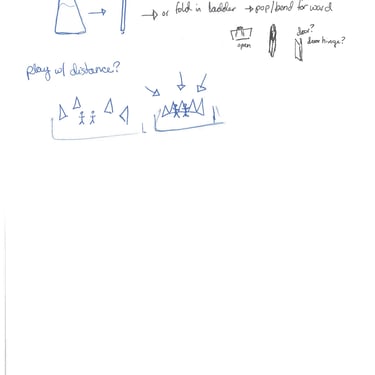 or fold in ladder → pop/bend forward
open
door?
door hinge?
play w/ distance?